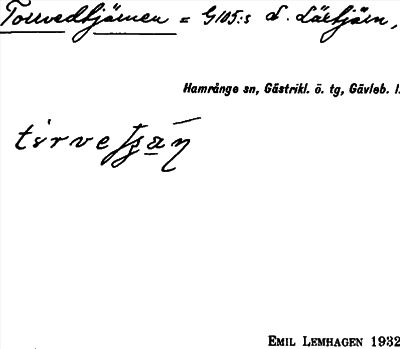 Torrvedtjärnen = G105:s d. Lästjärn,
Hamrånge sn, Gästrikl. ö. tg, Gävleb. l.
EMIL LEMHAGEN 1932